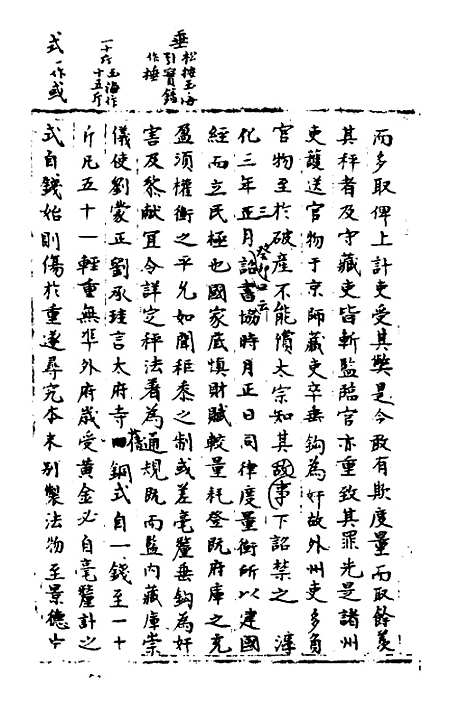 而多取俾上計吏受其弊是今敢有欺度量而取餘羨
其秤者及守藏吏皆斬監臨官亦重致其罪先是諸州
吏護送官物于京師藏吏卒垂鈎為奸故外州吏多負
官物至於破產不能償太宗知其事下詔禁之 淳
化三年三月癸卯詔書云協時月正日同律度量衡所以建國
經而立民極也國家底慎財賦較量耗登既府庫之充
盈須權衡之平允如聞秬黍之制或差毫釐垂鈎為奸
害及黎獻宜令詳定秤法著為通規既而監內藏庫崇
儀使劉蒙正劉承珪言太府寺舊銅式自一錢至一十
斤凡五十一輕重無準外府歲受黃金必自毫釐計之
式自錢始則傷於重遂尋究本末別製法物至景德中
垂 松按玉海引實錄作捶
一十六 玉海作十五斤
式一作或